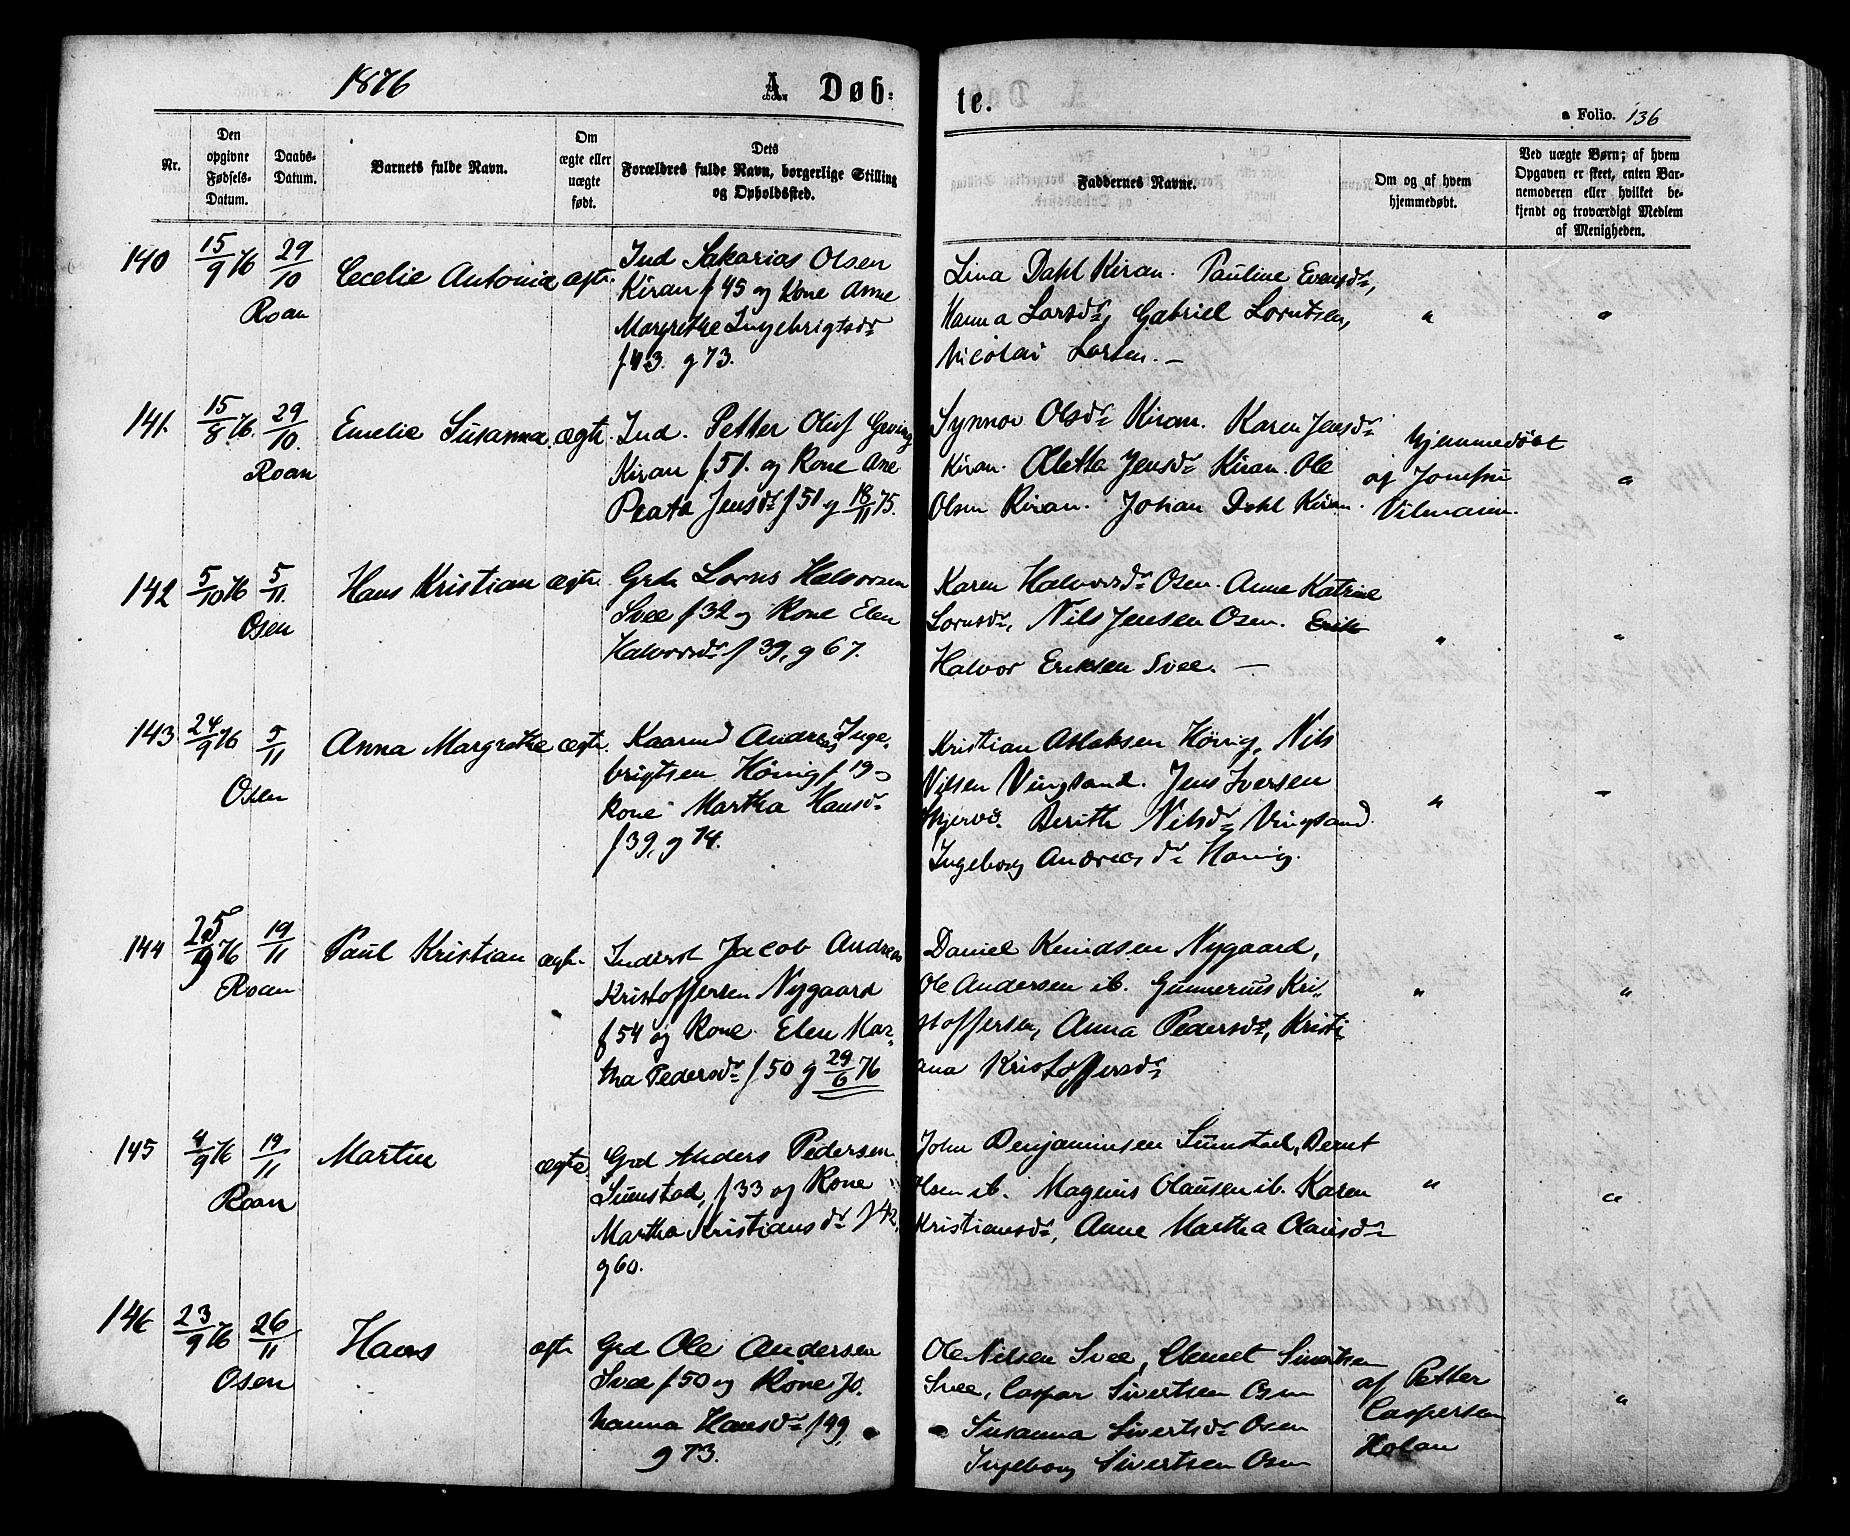 1876
A. Døb-
te.
a Folio. 136
Nr.
Den opgivne Fødsels-Datum.
Daabs-Datum.
Barnets fulde Navn.
Om ægte eller uægte født.
Dets Forældres fulde Navn, borgerlige Stilling og Opholdssted.
Faddernes Navne.
Om og af hvem hjemmedøbt.
Ved uægte Børn; af hvem Opgaven er skeet, enten Barnemoderen eller hvilket bekjendt og troværdigt Medlem af Menigheden.
140 15/9 76 29/10 Cecelie Antonia ægte.
Roan
Ind Sakarias Olsen
Kiran f 45 og Kone Anne
Margrethe Ingebrigtsdr
f. 43. g 73.
Lina Dahl Kiran. Pauline Evensdr,
Hanna Larsdr, Gabriel Lorntsen,
Nicolai Larsen. —
" "
141. 15/8 76. 29/10. Emelie Susanna. ægte.
Roan
Ind. Petter Oluf Gaving
Kiran f. 51. og Kone Ane
Peata Jensdr f 51 g 18/11 75.
Synnov Olsdr Kiran. Karen Jensdr
Kiran. Oletta Jensdr Kiran. Ole
Olsen Kiran. Johan Dahl Kiran.
hjemmedøbt
af Jomfru
Vilmann.
"
142 5/10 76 5/11. Hans Kristian ægte.
Osen
Grd. Lorns Halvorsen
Svee f 32 og Kone Elen
Halvorsdr f 39, g 67.
Karen Halvorsdr Osen. Anne Katrine
Lornsdr, Nils Jensen Osen. Erik
Halvor Eriksen Svee. —
" "
143 24/9 76 5/11 Anna Margrethe ægte.
Osen
Kaarmd Andreas Inge-
brigtsen Hönig f 19 og
Kone Martha Hansdr
f 39, g 74.
Kristian Aslaksen Hönig, Nils
Nilsen Vingsand. Jens Iversen
Berith Nilsdr Vingsand.
Ingeborg Andreasdr Hönig.
" "
144 25/9 76 19/11 Paul Kristian ægte.
Roan
Inderst Jacob Andreas
Kristoffersen Nygaard
f 54 og Kone Elen Mar-
tha Pedersdr f 50 g 29/6 76
Daniel Knudsen Nygaard,
Ole Andersen ib. Gunnerius Kri-
stoffersen, Anna Pedersdr, Kristi-
ana Kristoffersdr
" "
145 4/9 76 19/11 Martin ægte
Roan
Grd Anders Pedersen
Sumstad, f 33 og Kone
Martha Kristiansdr f 42,
g 60.
John Benjaminsen Sumstad, Bernt
Olsen ib. Magnus Olausen ib. Karen
Kristiansdr, Anne Martha Olausdr
" "
146 23/9 76 26/11 Hans ægte
Osen
Grd Ole Andersen
Svee f 50 og Kone Jo-
hanna Hansdr f 49,
g 73.
Ole Nilsen Svee, Clemet Sivertsen
Svee, Caspar Sivertsen Osen
Susanna Sivertsdr Osen
Ingeborg Sivertsen Osen
af Petter
Caspersen
Holan
"